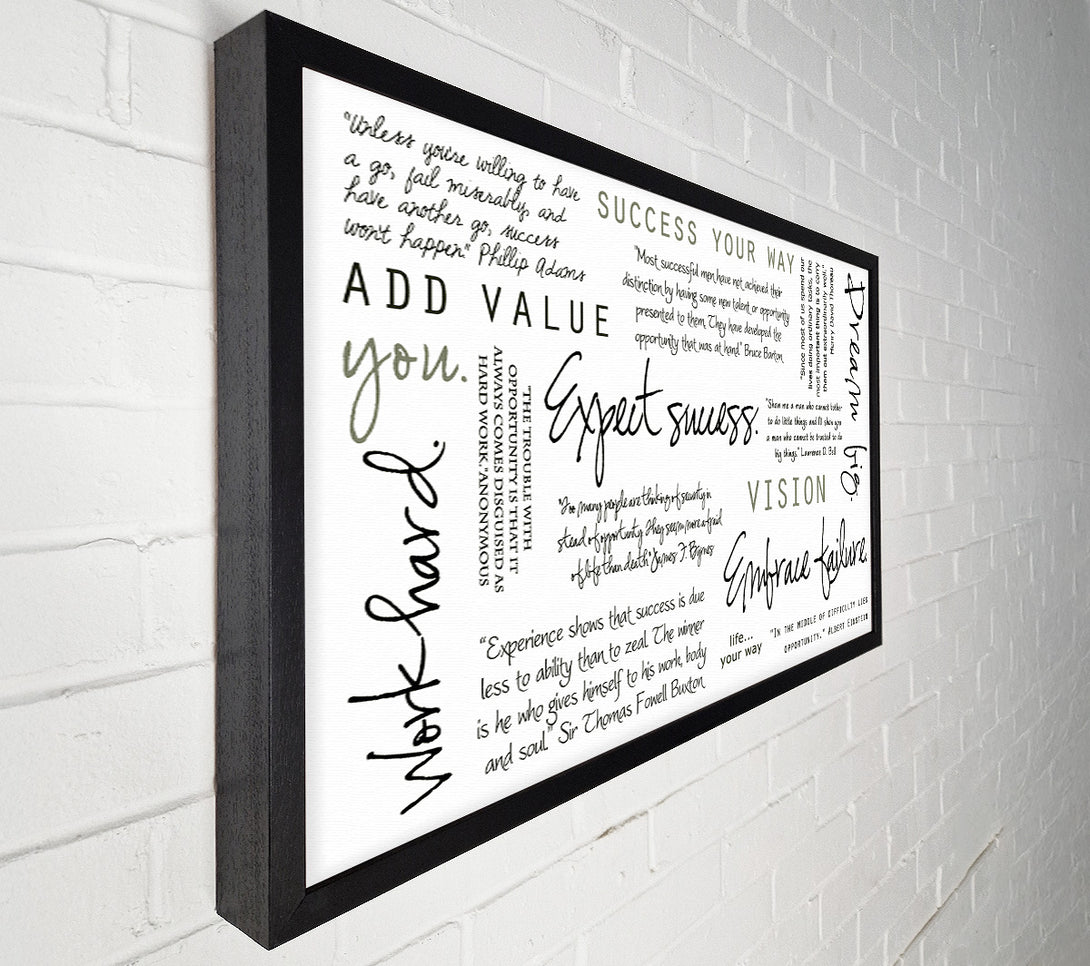 "Unless you're willing to have
a go, fail miserably, and
have another go, success
won't happen." Phillip Adams
SUCCESS YOUR WAY
"Most successful men have not achieved their
distinction by having some new talent or opportunity
presented to them. They have developed the
opportunity that was at hand." Bruce Barton
"Since most of us spend our
lives doing ordinary tasks, the
most important thing is to carry
them out extraordinarily well."
Henry David Thoreau
Dream big.
ADD VALUE
you.
"THE TROUBLE WITH
OPPORTUNITY IS THAT IT
ALWAYS COMES DISGUISED AS
HARD WORK."ANONYMOUS
Expect success.
"Show me a man who cannot bother
to do little things and I'll show you
a man who cannot be trusted to do
big things." Lawrence D. Bell
VISION
work hard.
"Too many people are thinking of security in
stead of opportunity. They seem more afraid
of life than death" James F. Byrnes
Embrace failure.
"Experience shows that success is due
less to ability than to zeal. The winner
is he who gives himself to his work, body
and soul." Sir Thomas Fowell Buxton
life...
your way
"IN THE MIDDLE OF DIFFICULTY LIES
OPPORTUNITY." ALBERT EINSTEIN